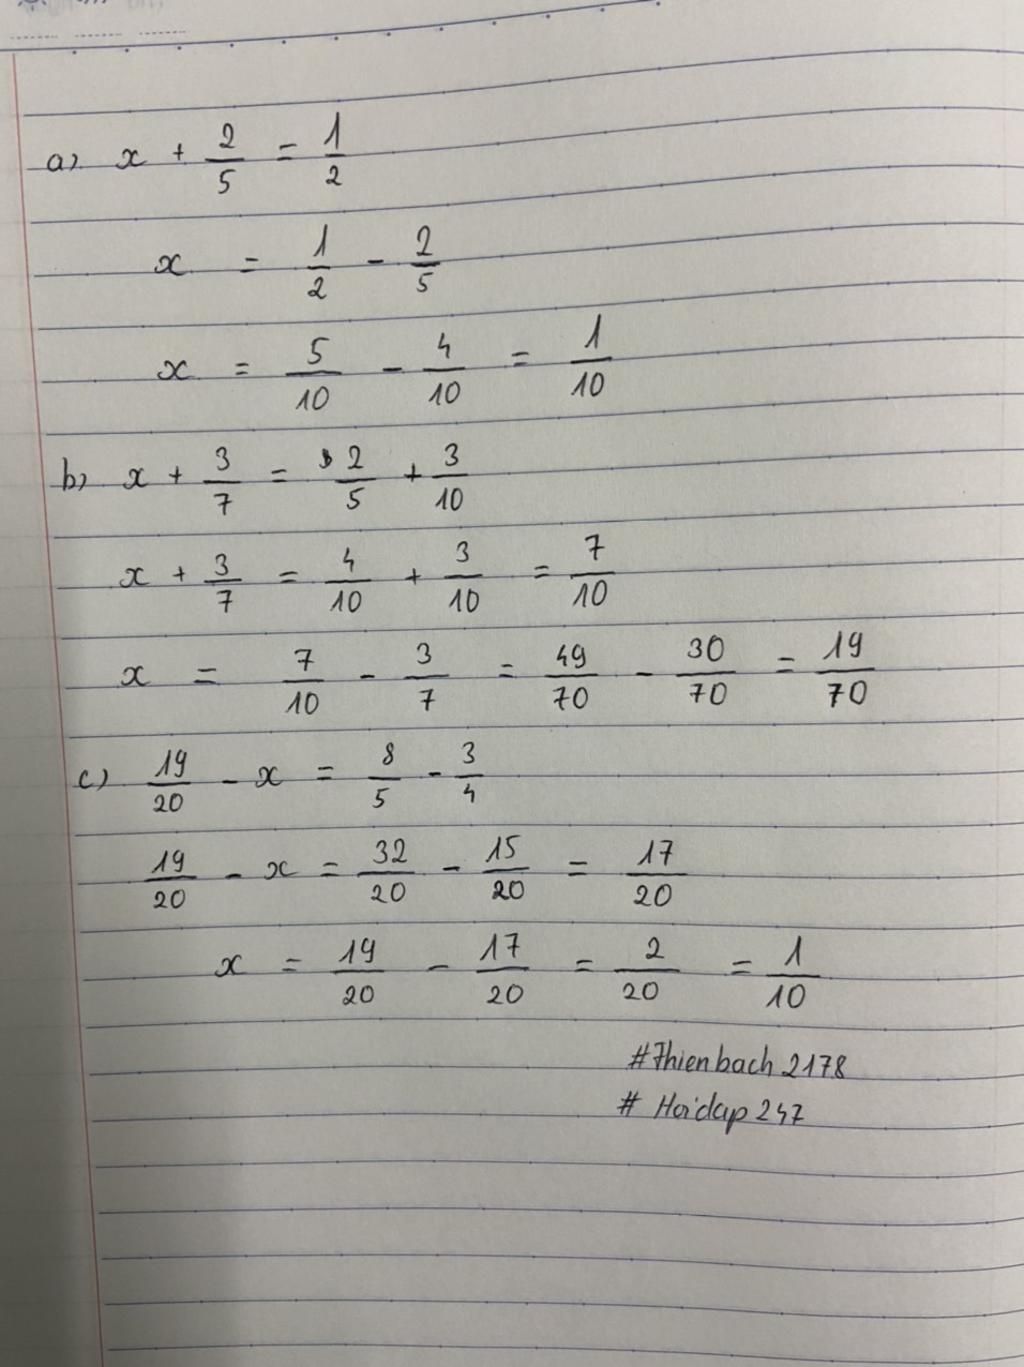 a) x + 2/5 = 1/2
x = 1/2 - 2/5
x = 5/10 - 4/10 = 1/10
b) x + 3/7 = 2/5 + 3/10
x + 3/7 = 4/10 + 3/10 = 7/10
x = 7/10 - 3/7 = 49/70 - 30/70 = 19/70
c) 19/20 - x = 8/5 - 3/4
19/20 - x = 32/20 - 15/20 = 17/20
x = 19/20 - 17/20 = 2/20 = 1/10
#Thienbach2178
# Hoidap247